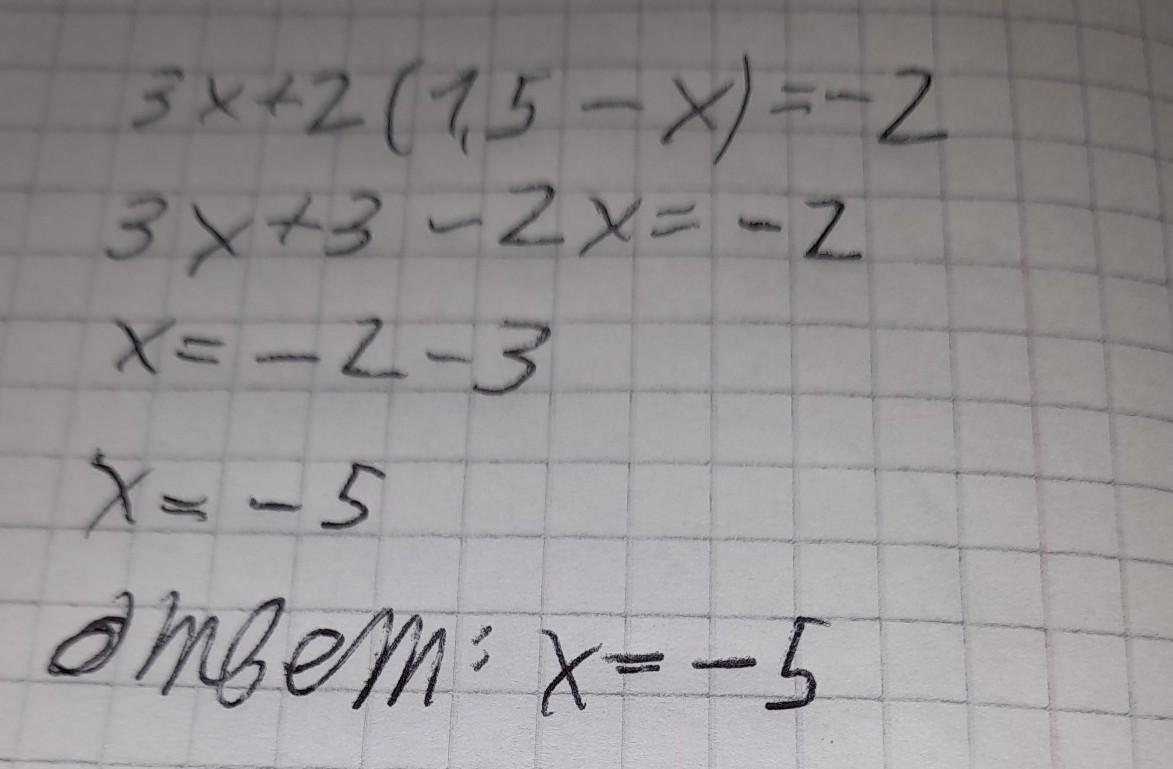 3x+2(1,5-x)=-2
3x+3-2x=-2
x=-2-3
x=-5
ответ: x=-5